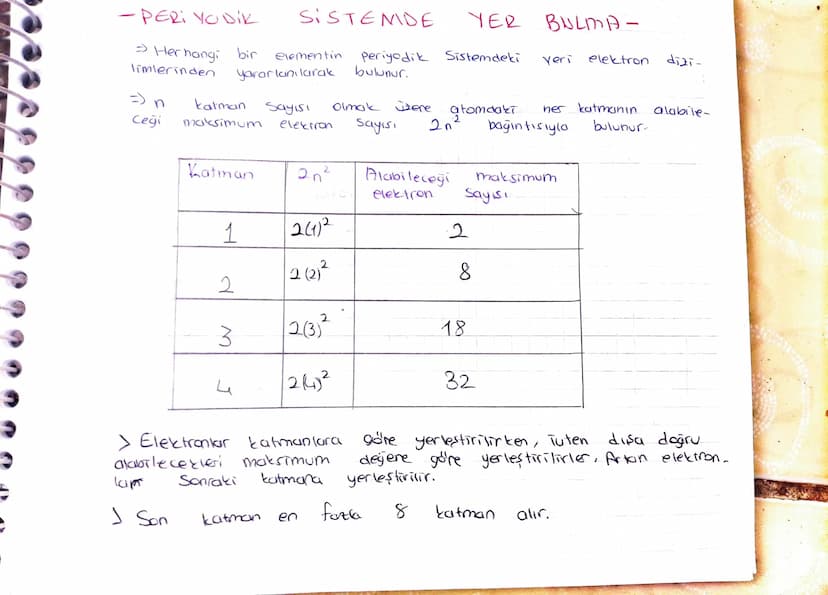 -PERİYODİK SİSTEMDE YER BULMA-
⇒ Herhangi bir elementin periyodik sistemdeki yeri elektron dizi-
limlerinden yararlanılarak bulunur.
⇒ n katman sayısı olmak üzere atomdaki her katmanın alabile-
ceği maksimum elektron sayısı 2n² bağıntısıyla bulunur.
Katman 2n² Alabileceği maksimum
elektron sayısı
1 2(1)² 2
2 2(2)² 8
3 2(3)² 18
4 2(4)² 32
> Elektronlar katmanlara göre yerleştirilirken, içten dışa doğru
alabilecekleri maksimum değere göre yerleştirilirler. Artan elektron-
lar sonraki katmana yerleştirilir.
> Son katman en fazla 8 katman alır.